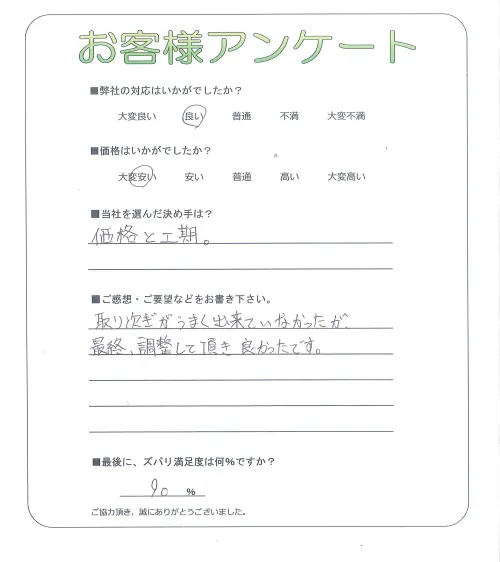 お客様アンケート
■弊社の対応はいかがでしたか？
大変良い 良い 普通 不満 大変不満
■価格はいかがでしたか？
大変安い 安い 普通 高い 大変高い
■当社を選んだ決め手は？
価格と工期。
■ご感想・ご要望などをお書き下さい。
取り次ぎがうまく出来ていなかったが、
最終、調整して頂き良かったです。
■最後に、ズバリ満足度は何％ですか？
90 %
ご協力頂き、誠にありがとうございました。